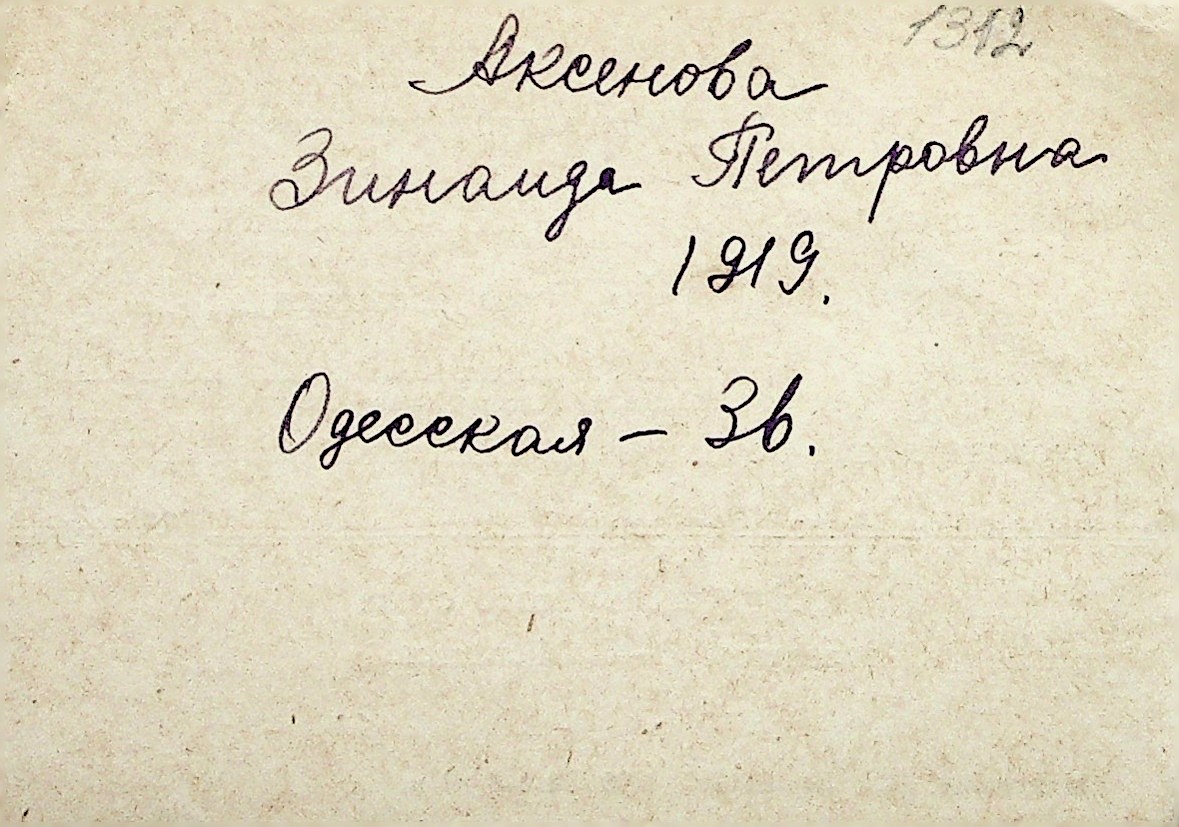 1312
Аксенова
Зинаида Петровна
1919.
Одесская – 3в.